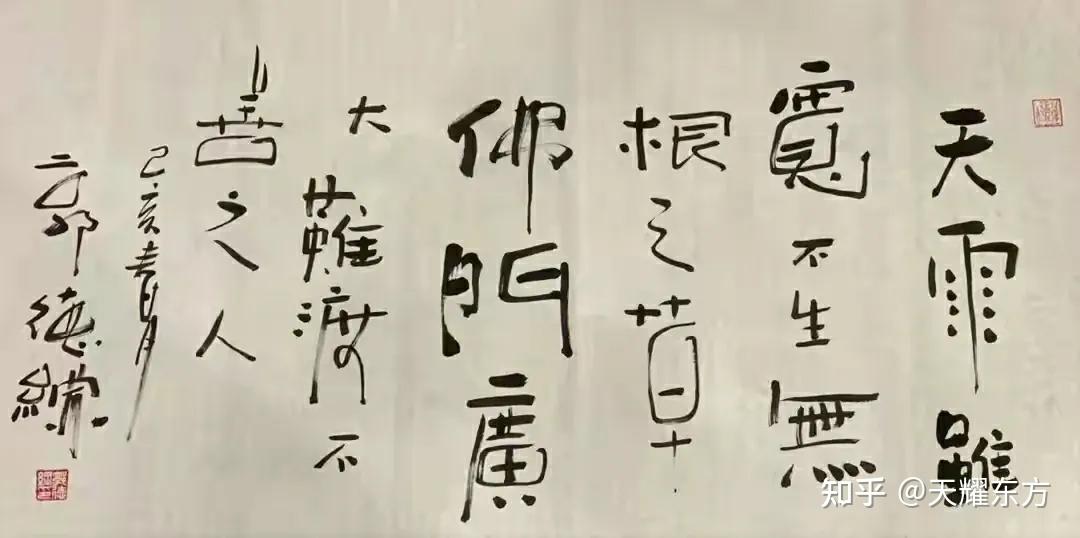 天雨雖
寬不生無
根之草
佛門廣
大難渡不
善之人
己亥春月
郭德綱
知乎 @天耀东方